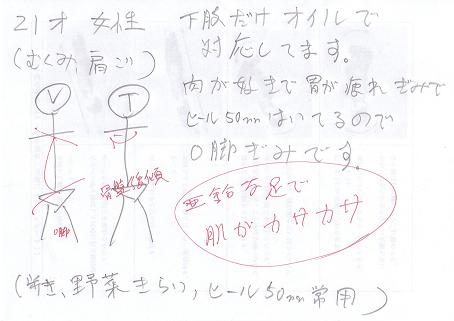 21才 女性
(むくみ, 肩こり)
下肢だけオイルで
対応してます。
肉が好きで胃が疲れぎみで
ヒール50mmはいてるので
O脚ぎみです。
V
T
骨盤後傾
O脚
亜鉛不足で
肌がカサカサ
野菜きらい, ヒール50mm常用)